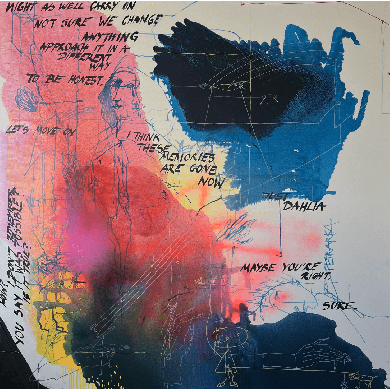 MIGHT AS WELL CARRY ON
NOT SURE WE CHANGE
ANYTHING
APPROACH IT IN A
DIFFERENT
WAY
TO BE HONEST
LET'S MOVE ON
I THINK
THESE
MEMORIES
ARE GONE
NOW
DAHLIA
MAYBE YOU'RE
RIGHT.
SURE
YOU SAY IT WAS POSSIBLE